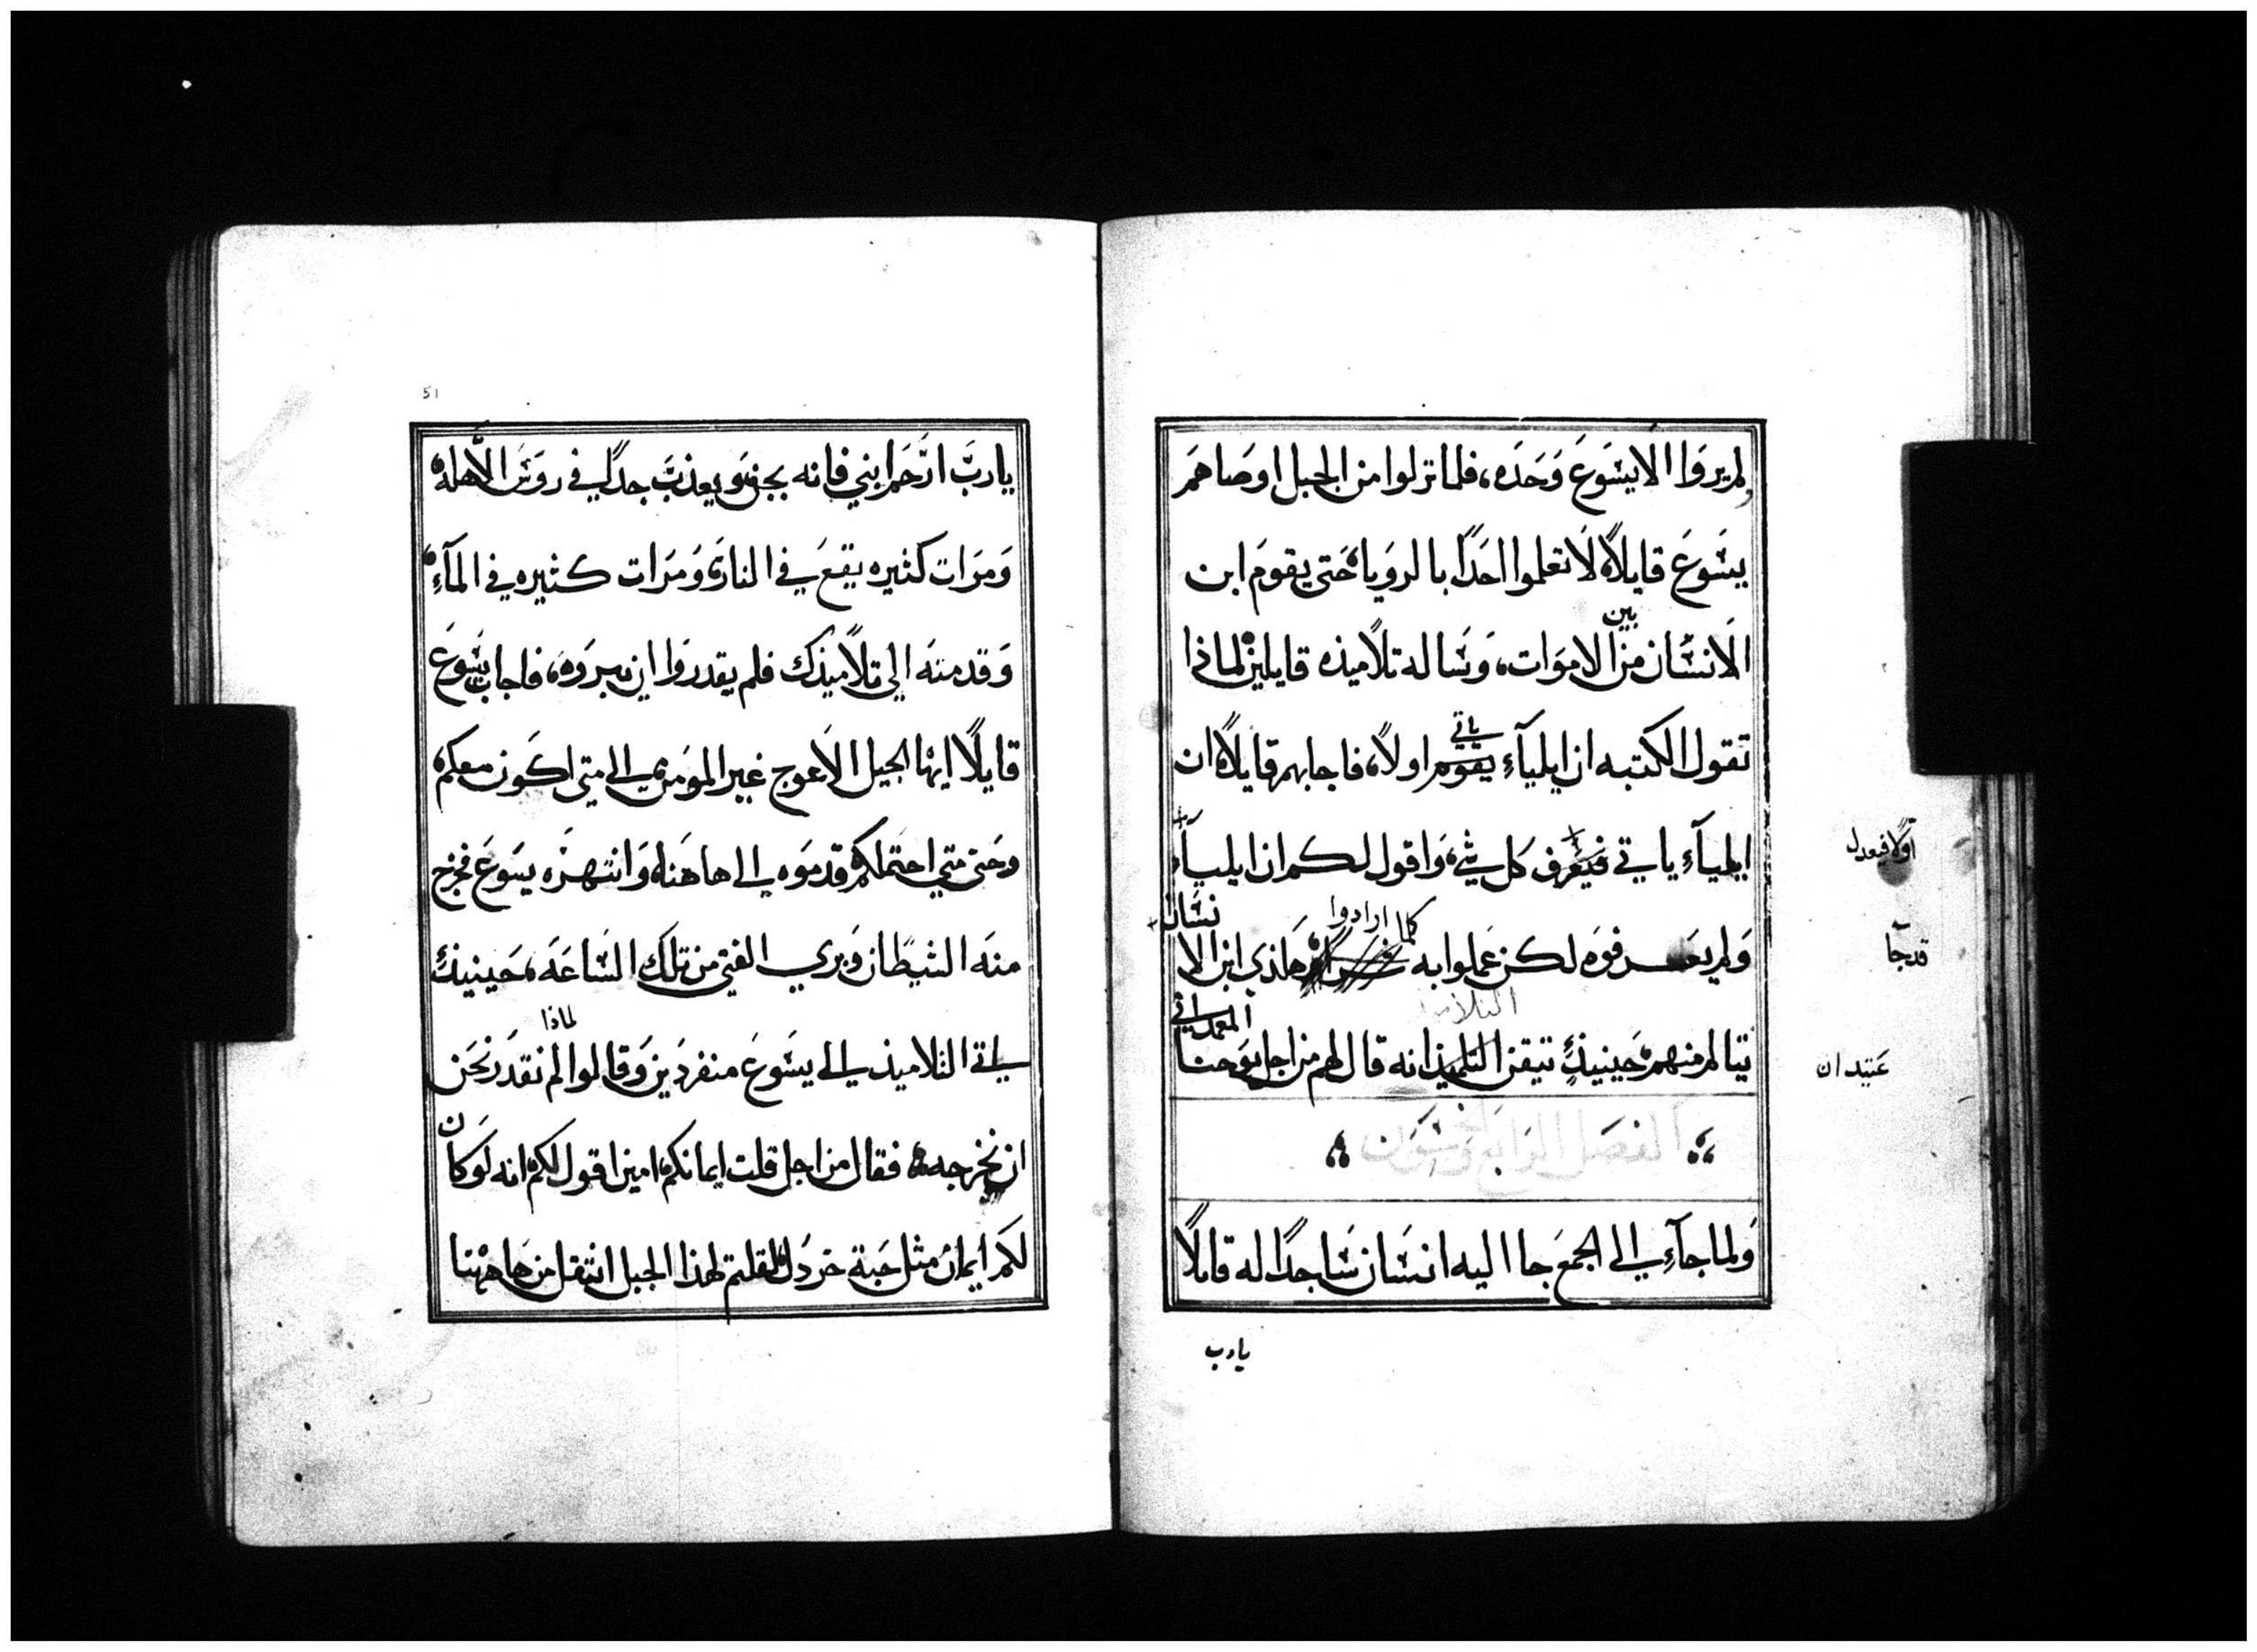 لم يروا الا يسوع وحده، فلما نزلوا من الجبل اوصاهم
يسوع قايلاً لا تعلموا احداً بالرويا حتى يقوم ابن
بين
الانسان من الاموات، وساله تلاميذه قايلين لماذا
ياتي
تقول الكتبه ان ايليآء يقوم اولاً، فاجابهم قايلاً ان
ايليآء ياتي فيعرف كل شي، واقول لكم ان ايليآء
اولاً فيعدل
قد جآ
كلما ارادوا
نسان
ولم يعرفوه لكن عملوا به هكذي ابن الا
عتيد ان
التلاميذ
المعمداني
يتالم منهم حينيذٍ تيقن التلميذ انه قال لهم من اجل يوحنا
الفصل الرابع وخمسون
ولما جآء الي الجمع جا اليه انسان ساجداً له قايلاً
يارب
51
يارب ارحم ابني فانه يجن ويعذب جداً في روس الاهله
ومرات كثيره يقع في النار ومرات كثيره في المآء
وقدمته الي تلاميذك فلم يقدروا ان يبروه، فاجاب يسوع
قايلاً ايها الجيل الاعوج غير المومن الي متي اكون معكم
وحتى متي احتملكم قدموه الي هاهنا وانتهره يسوع فخرج
منه الشيطان وبري الفتي من تلك الساعه، حينيذٍ
لماذا
اتي التلاميذ الي يسوع منفردين وقالوا لم نقدر نحن
ان نخرجه، فقال من اجل قلت ايمانكم امين اقول لكم انه لو كان
لكم ايمان مثل حبة خردل لقلتم لهذا الجبل انتقل من هاهنا